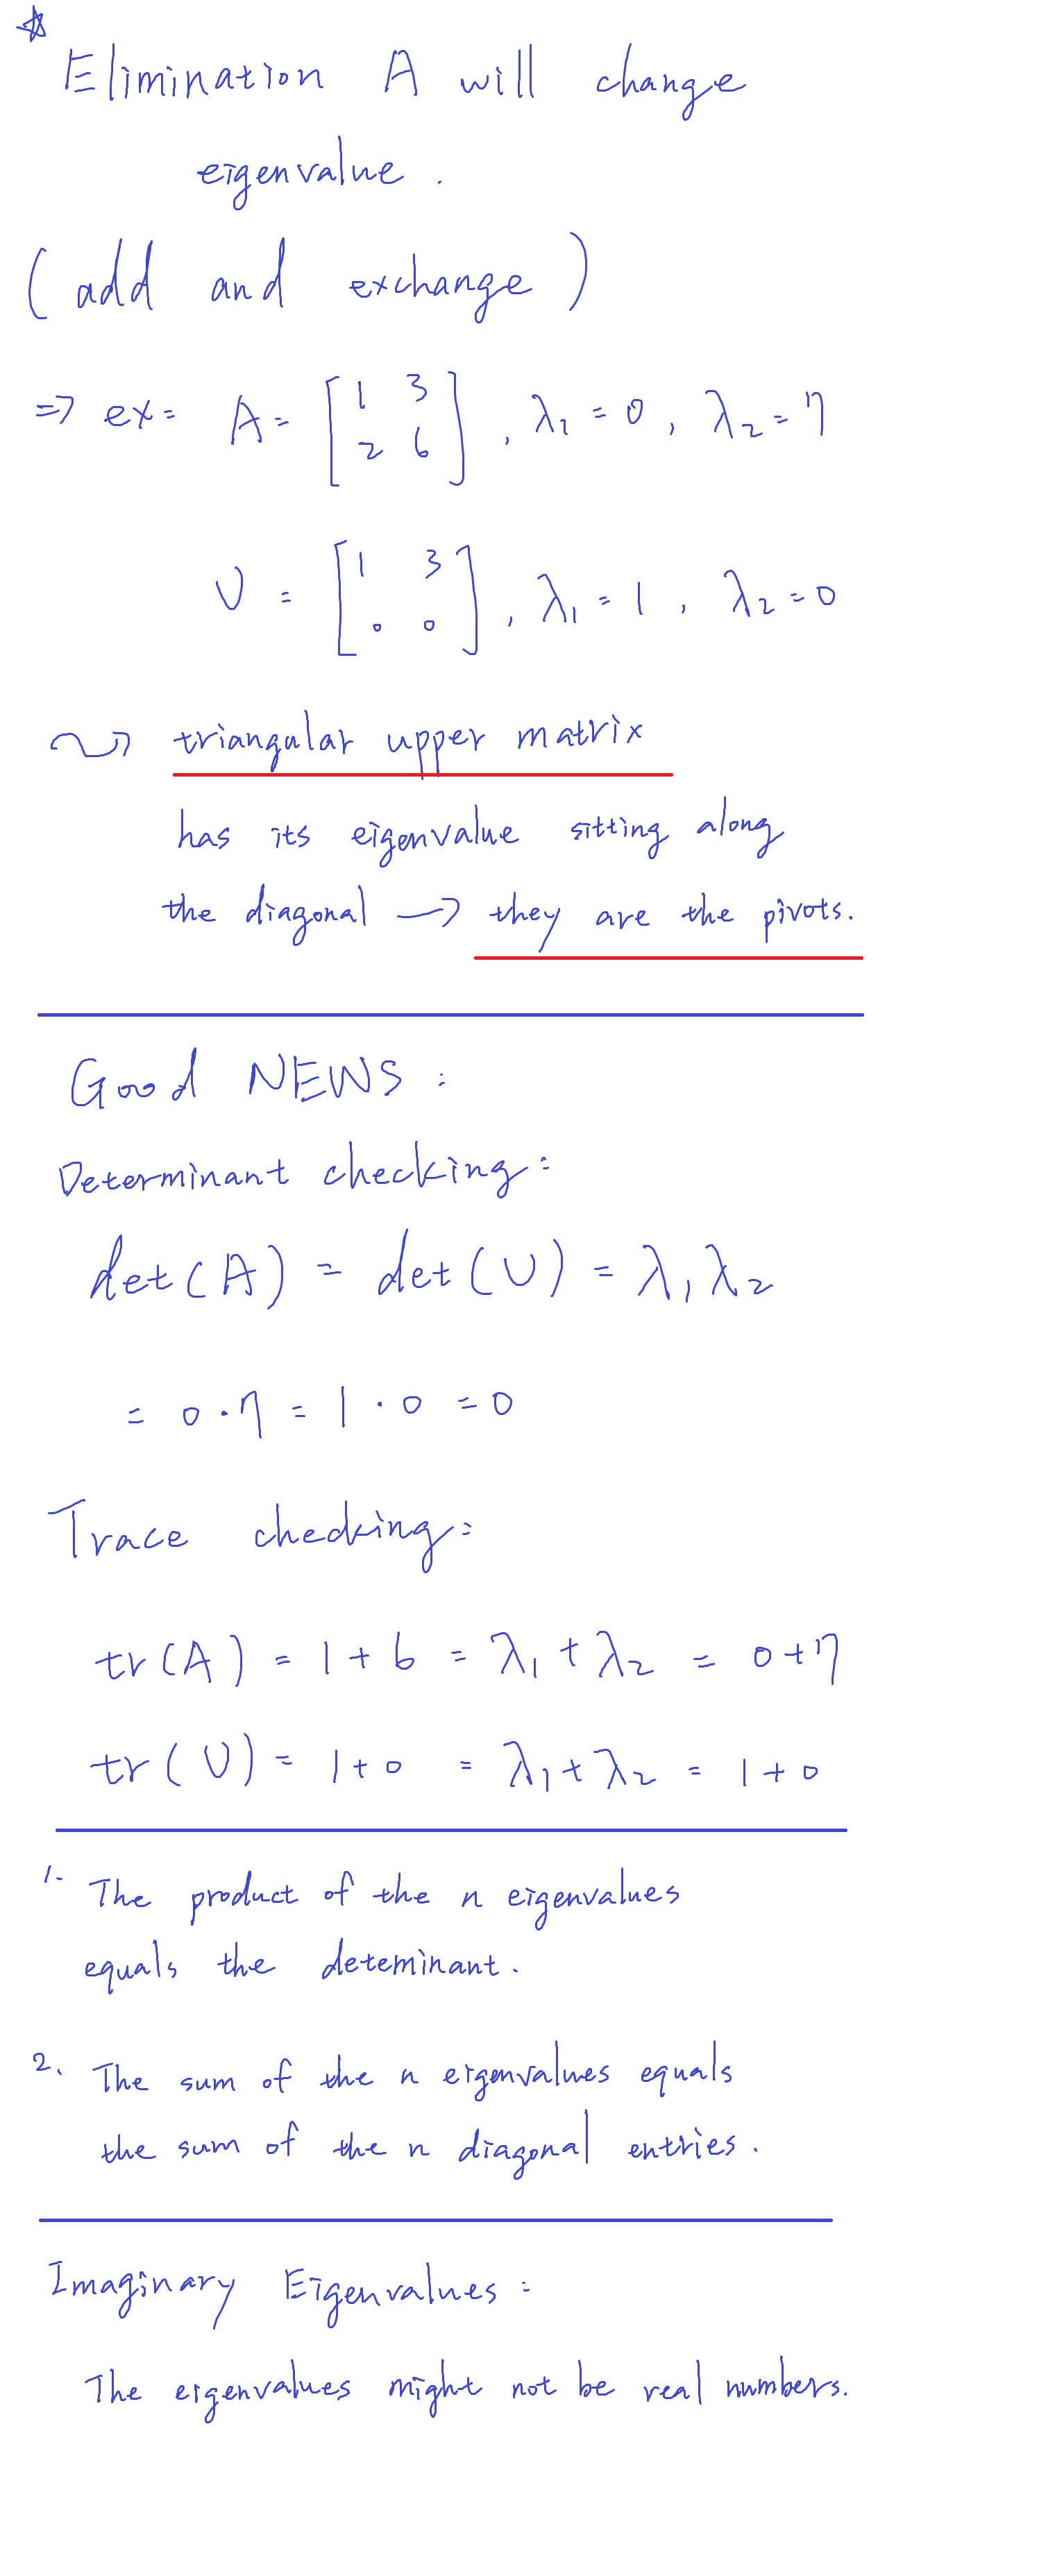 ☆
Elimination A will change
eigenvalue.
(add and exchange)
⇒ ex: A = [1 3; 2 6], λ₁ = 0, λ₂ = 7
U = [1 3; 0 0], λ₁ = 1, λ₂ = 0
triangular upper matrix
has its eigenvalue sitting along
the diagonal → they are the pivots.
Good NEWS:
Determinant checking:
det(A) = det(U) = λ₁λ₂
= 0·7 = 1·0 = 0
Trace checking:
tr(A) = 1+6 = λ₁+λ₂ = 0+7
tr(U) = 1+0 = λ₁+λ₂ = 1+0
1. The product of the n eigenvalues
equals the deteminant.
2. The sum of the n eigenvalues equals
the sum of the n diagonal entries.
Imaginary Eigenvalues:
The eigenvalues might not be real numbers.